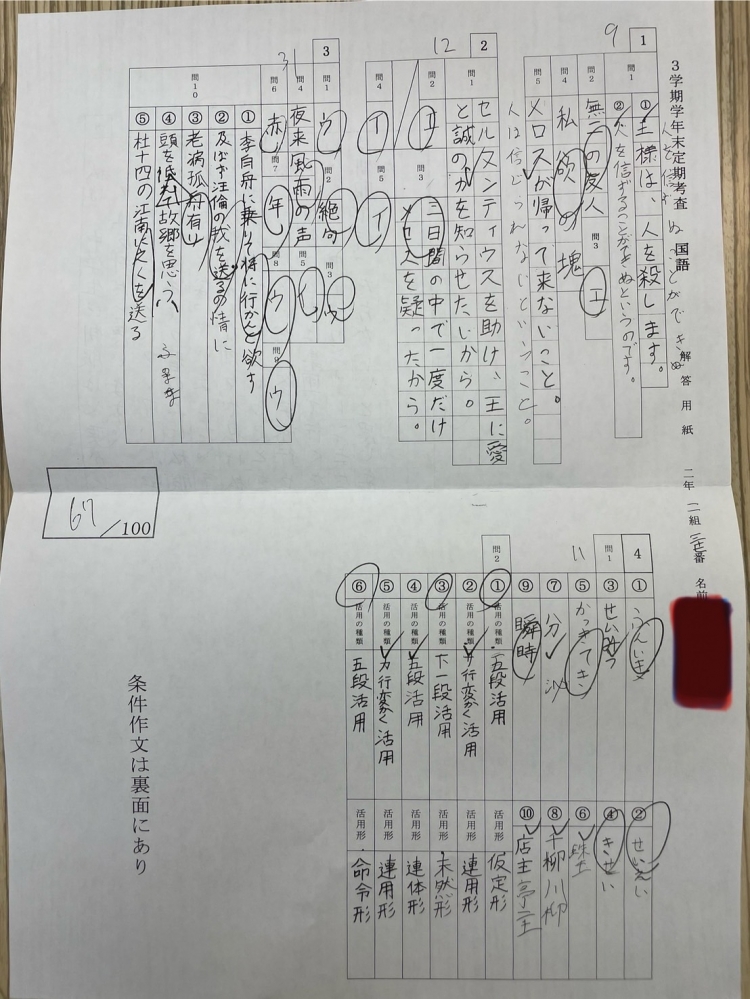 3学期学年末定期考査 国語 解答用紙 二年 二組 番 名前
1
9
問1
①王様は、人を殺します。
②人を信ずることができぬというのです。
問2
無二の友人
問3
エ
問4
私欲の塊
問5
メロスが帰って来ないこと。
人は信じられないということ。
2
12
問1
セルヌンティウスを助け、王に愛
と誠の力を知らせたいから。
問2
エ
問3
三日間の中で一度だけ
メロスを疑ったから。
問4
イ
問5
イ
3
31
問1
ウ
問2
絶句
問3
ウ
問4
夜来風雨の声
問5
問6
赤
問7
年
問8
ウ
問9
ウ
問10
①李白舟に乗りて将に行かんと欲す
②及ばず汪倫の我を送るの情に
③老病孤舟有り
④頭を低れて故郷を思う
⑤杜十四の江南に之くを送る
67/100
4
11
問1
①ふんいき
②せいえい
③せんぱつ
④きせい
⑤かっきてき
⑥
⑦分
⑧千柳川柳
⑨瞬時
⑩店主亭主
問2
①活用の種類 五段活用 活用形 仮定形
②活用の種類 サ行変かく活用 活用形 連用形
③活用の種類 下一段活用 活用形 未然形
④活用の種類 五段活用 活用形 連体形
⑤活用の種類 カ行変かく活用 活用形 連用形
⑥活用の種類 五段活用 活用形 命令形
条件作文は裏面にあり